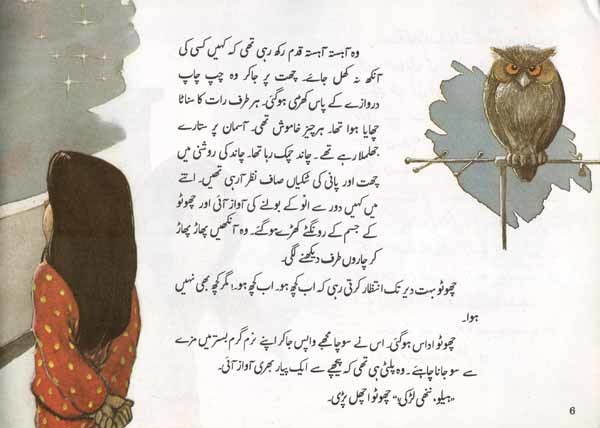 وہ آہستہ آہستہ قدم رکھ رہی تھی کہ کہیں کسی کی
آنکھ نہ کھل جائے۔ چھت پر جاکر وہ چپ چاپ
دروازے کے پاس کھڑی ہوگئی۔ ہر طرف رات کا سناٹا
چھایا ہوا تھا۔ ہر چیز خاموش تھی۔ آسمان پر ستارے
جھلملا رہے تھے۔ چاند چمک رہا تھا۔ چاند کی روشنی میں
چھت اور پانی کی ٹنکیاں صاف نظر آرہی تھیں۔ اتنے
میں کہیں دور سے الو کے بولنے کی آواز آئی اور چھوٹو
کے جسم کے رونگٹے کھڑے ہوگئے۔ وہ آنکھیں پھاڑ پھاڑ
کر چاروں طرف دیکھنے لگی۔
چھوٹو بہت دیر تک انتظار کرتی رہی کہ اب کچھ ہو۔ اب کچھ ہو۔! مگر کچھ بھی نہیں
ہوا۔
چھوٹو اداس ہوگئی۔ اس نے سوچا مجھے واپس جاکر اپنے نرم گرم بستر میں مزے
سے سوجانا چاہئے۔ وہ پلٹی ہی تھی کہ پیچھے سے ایک پیار بھری آواز آئی۔
"ہیلو، ننھی لڑکی" چھوٹو اچھل پڑی۔
6